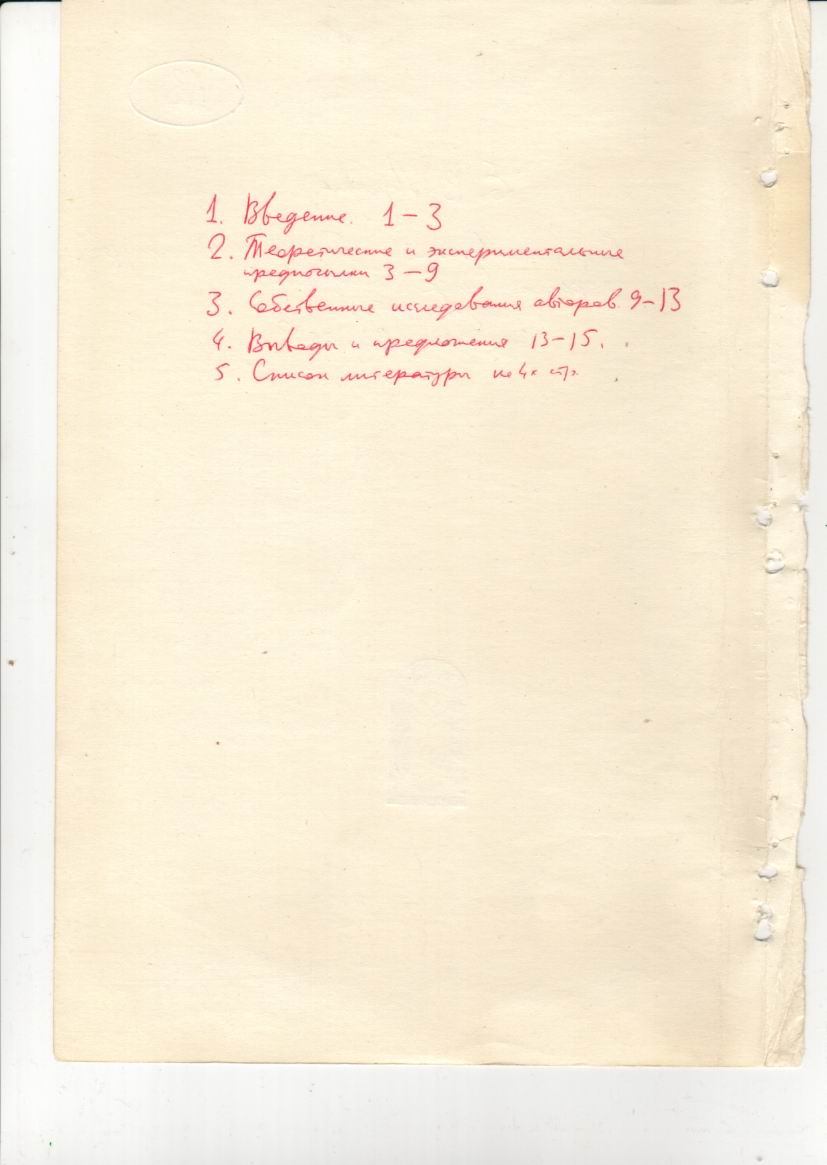 1. Введение. 1-3
2. Теоретические и экспериментальные
предпосылки 3-9
3. Собственные исследования авторов. 9-13
4. Выводы и предложения 13-15.
5. Список литературы на 4х стр.